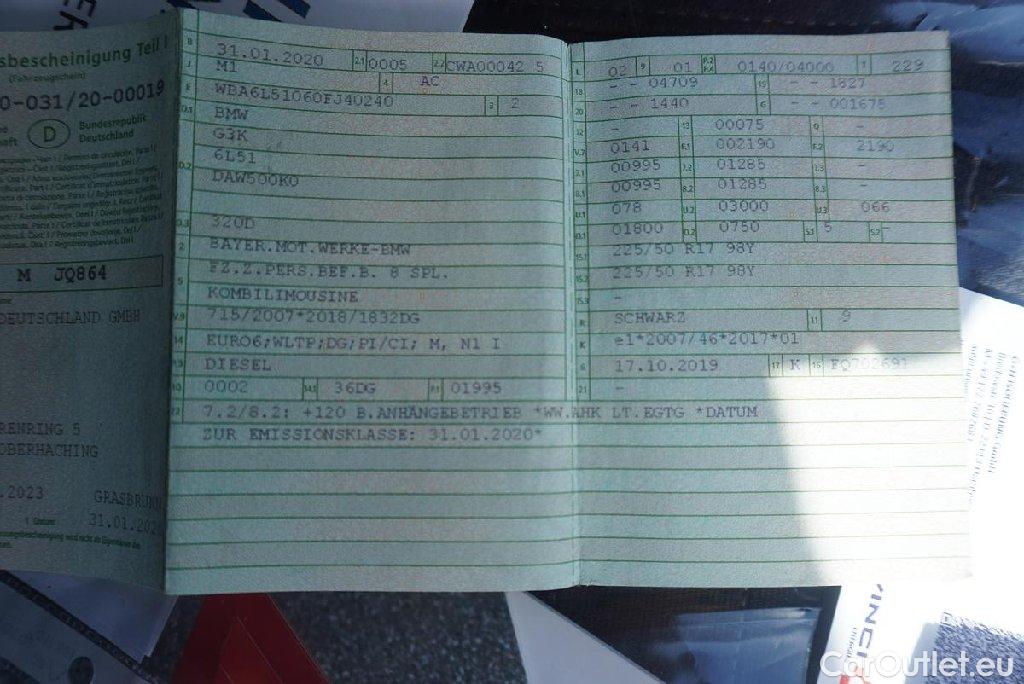 sbescheinigung Teil I
(Fahrzeugschein)
0-031/20-00019
D
Bundesrepublik
Deutschland
M JQ864
DEUTSCHLAND GMBH
RENRING 5
OBERHACHING
.2023 GRASBRUNN
31.01.202
B 31.01.2020 2.1 0005 2.2 CWA00042 5
J M1 4 AC
E WBA6L51060FJ40240 3 2
D.1 BMW
G3K
D.2 6L51
DAW500K0
D.3 320D
2 BAYER.MOT.WERKE-BMW
FZ.Z.PERS.BEF.B. 8 SPL.
5 KOMBILIMOUSINE
V.9 715/2007*2018/1832DG
14 EURO6;WLTP;DG;PI/CI; M, N1 I
P.3 DIESEL
10 0002 14.1 36DG P.1 01995
22 7.2/8.2: +120 B.ANHÄNGEBETRIEB *WW.AHK LT.EGTG *DATUM
ZUR EMISSIONSKLASSE: 31.01.2020*
L 02 9 01 P.2 P.4 0140/04000 T 229
18 - - 04709 19 - - 1827
20 - - 1440 G - - 001675
12 - 13 00075 Q -
V.7 0141 F.1 002190 F.2 2190
7.1 00995 7.2 01285 7.3 -
8.1 00995 8.2 01285 8.3 -
U.1 078 U.2 03000 U.3 066
O.1 01800 O.2 0750 S.1 5 S.2 -
15.1 225/50 R17 98Y
15.2 225/50 R17 98Y
15.3 -
R SCHWARZ 11 9
K e1*2007/46*2017*01
6 17.10.2019 17 K 16 FQ702691
21 -
CarOutlet.eu